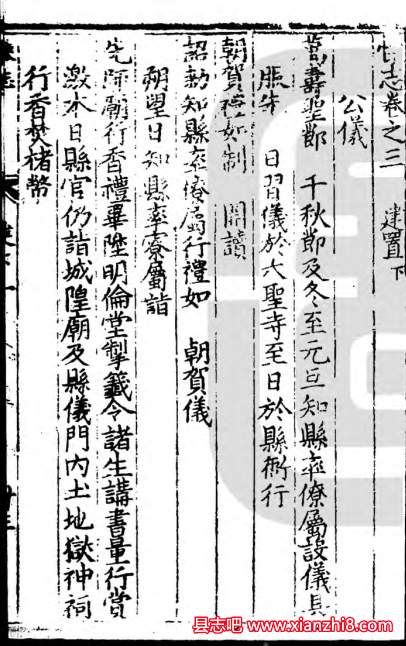 志卷之三 建置下
公儀
萬壽聖節 千秋節及冬至元旦知縣率僚屬設儀具
日習儀於大聖寺至日於縣衙行
朝賀禮如制 開讀
詔勑知縣率僚屬行禮如 朝賀儀
朔望日知縣率寮屬詣
先師廟行香禮畢陞明倫堂掣籤令諸生講書量行賞
激本日縣官仍詣城隍廟及縣儀門內土地獄神祠
行香焚褚幣
县志吧 www.xianzhi8.com